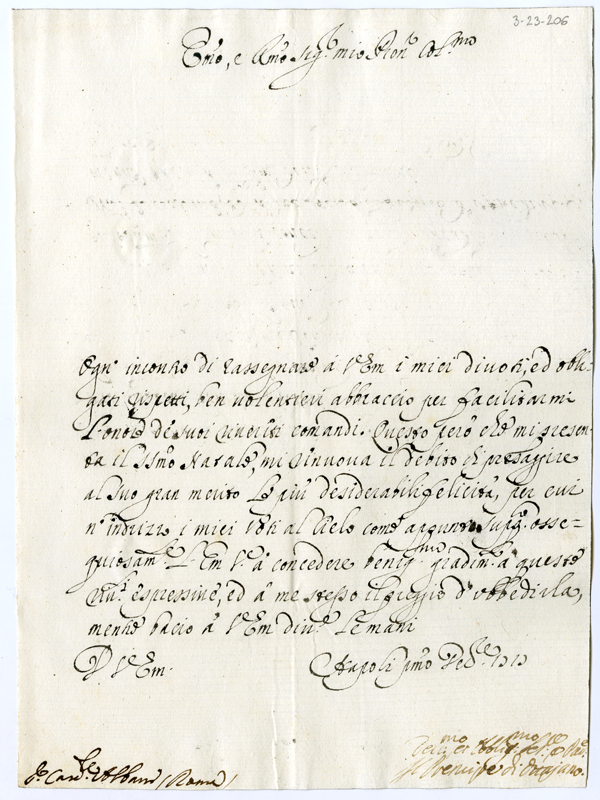 3-23-206
Emo, e Rmo Sig.r mio Pron Col.mo
Ogn' incontro di rassegnare à V Em i miei divoti, ed obli-
gati rispetti, ben volentieri abbraccio per facilitarmi
l'onore de suoi riveriti comandi. Questo però che mi presen-
ta il Ssmo Natale, mi rinuova il debito di presagire
al suo gran merito le più desiderabili felicità, per cui
n' indrizzo i miei voti al Cielo come appunto sup.co osse-
quiosam.te l'Em V.a à concedere benig.mo gradim.to à queste
espressive, ed à me stesso il preggio d' ubbedirla,
mentre bacio à V Em div.te le mani
D. V Em.
Napoli pmo Xbre 1713
Sr Card.le Albani (Roma)
Il Prencipe di